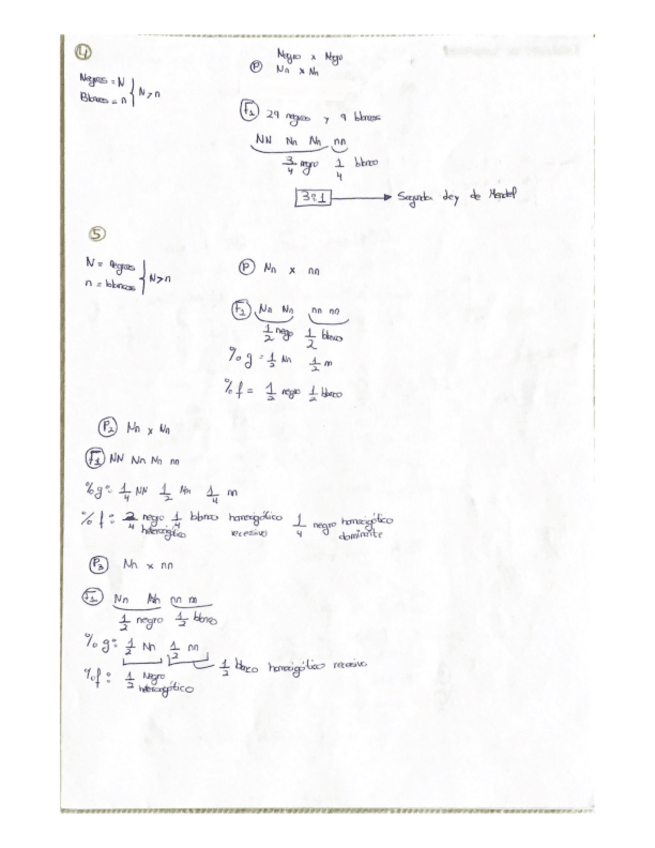 4
Negro x Negro
Negros = N
Blancos = n } N > n
P Nn x Nn
F1 29 negros y 9 blancos
NN Nn Nn nn
3/4 negro 1/4 blanco
3:1 → Segunda Ley de Mendel
5
N = negros
n = blancos } N>n
P Nn x nn
F1 Nn Nn nn nn
1/2 negro 1/2 blanco
% g = 1/2 Nn 1/2 nn
% f = 1/2 negro 1/2 blanco
P2 Nn x Nn
F1 NN Nn Nn nn
% g = 1/4 NN 1/2 Nn 1/4 nn
% f = 2/4 negro heterocigótico 1/4 blanco homocigótico recesivo 1/4 negro homocigótico dominante
P3 Nn x nn
F1 Nn Nn nn nn
1/2 negro 1/2 blanco
% g = 1/2 Nn 1/2 nn
1/2 blanco homocigótico recesivo
% f = 1/2 Negro heterocigótico